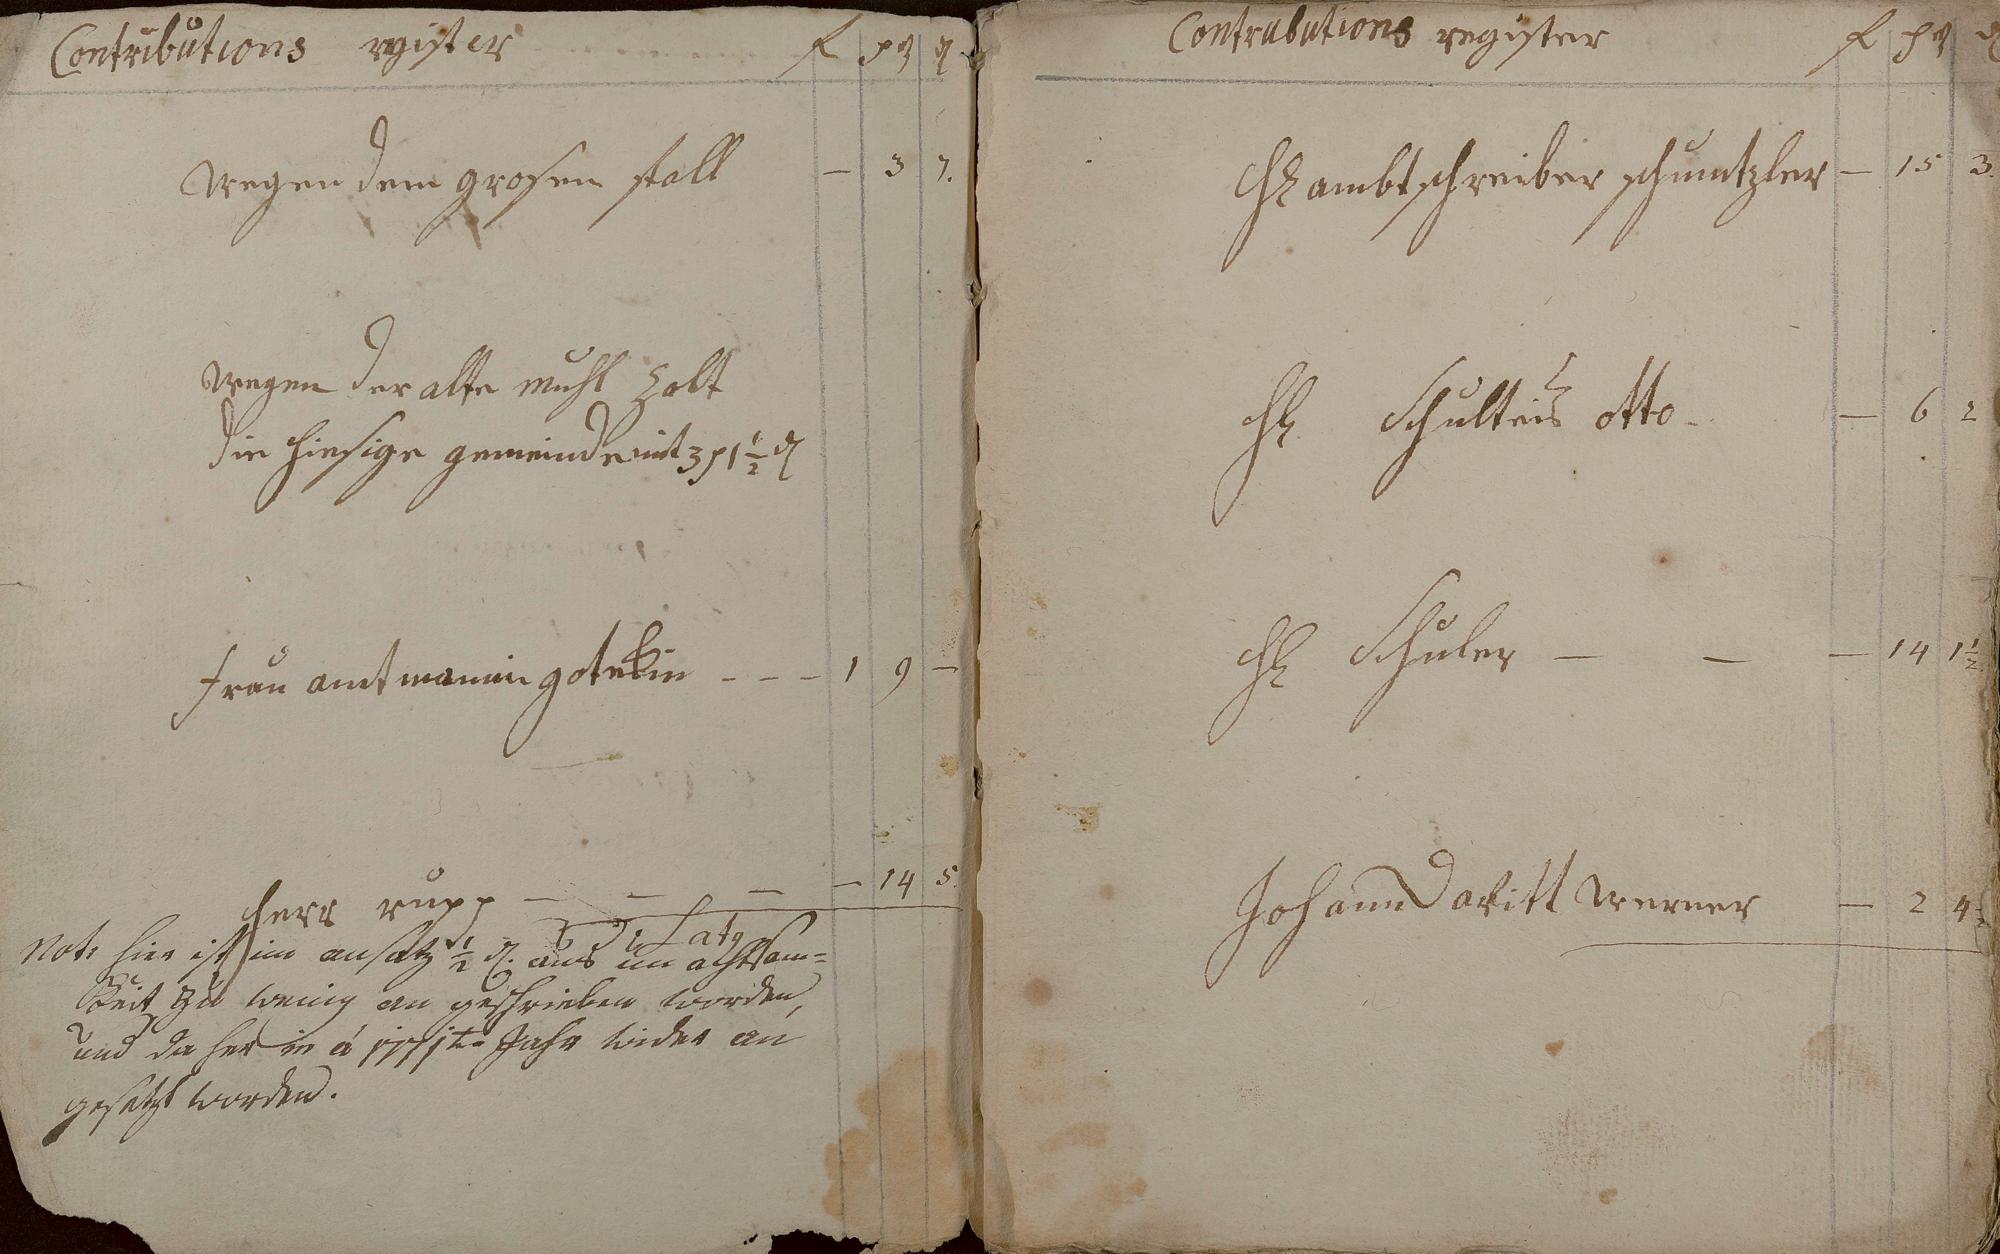 Contributions register f ß ₰
wegen dem grosen stall — 3 7.
wegen der alte muhl zalt
die hiesige gemeinde mit 3 ß 1 ½ ₰
frau amtmannin - - - 1 9 —
herr rupp — — — — 14 5.
Latg
Not: hier ist im ansatz ½ ₰. aus un achtsam=
keit zu wenig an geschrieben worden,
und da her in Jahr wider an
gesetzt worden.
Contributions register f ß ₰
H ambtschreiber schmitzler — 15 3.
H Schulteis otto - — 6 2
H Schuler — — — 14 1 ½
Johann Davitt Werner — 2 4 ½